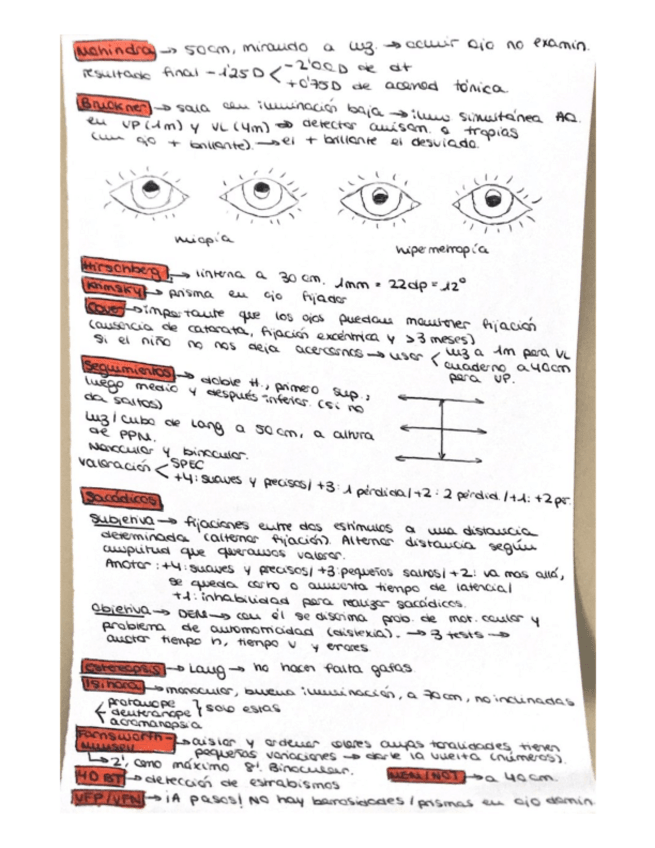 Mohindra → 50cm, mirando a luz. → ocluir ojo no examin.
resultado final -1'25D < -2'00D de dt
+0'75D de acomod tónica.
Bruckner → sala con iluminación baja → ilum simultánea AO
en VP (1m) y VL (4m) → detectar anisom. o tropias
(un ojo + brillante). → el + brillante el desviado.
miopía
hipermetropía
Hirschberg → linterna a 30cm. 1mm = 22dp = 12°
Krimsky → prisma en ojo fijador
Cover → importante que los ojos puedan mantener fijación
(ausencia de catarata, fijación excéntrica y >3 meses)
Si el niño no nos deja acercarnos → usar < luz a 1m para VL
cuaderno a 40cm
para VP.
Seguimientos → doble H., primero sup.,
luego medio y después inferior. (si no
da saltos)
Luz/cubo de Lang a 50cm, a altura
de PPM.
Monocular y binocular.
Valoración < SPEC
+4: suaves y precisos/ +3: 1 pérdida/ +2: 2 pérdid./ +1: +2 pr.
Sacádicos
Subjetiva → fijaciones entre dos estímulos a una distancia
determinada (alternar fijación). Alternar distancia según
amplitud que queramos valorar.
Anotar: +4: suaves y precisos/ +3: pequeños saltos/ +2: va mas allá,
se queda corto o aumenta tiempo de latencia/
+1: inhabilidad para realizar sacádicos.
Objetiva → DEM → con él se discrima prob. de mot. ocular y
problema de automoticidad (dislexia). → 3 tests →
anotar tiempo h, tiempo v y errores
Estereopsis → Lang → no hacen falta gafas.
Ishihara → monocular, buena iluminación, a 70cm, no inclinadas
< protanope
deuteranope } solo estas
acromanopsia
Farnsworth-
Munsell → aislar y ordenar colores cuyas tonalidades tienen
pequeñas variaciones → darle la vuelta (números).
→ 2', como máximo 8'. Binocular.
4D BT → detección de estrabismos
MEM/NOT → a 40cm.
VFP/VFN → ¡A pasos! NO hay borrosidades/prismas en ojo domin.